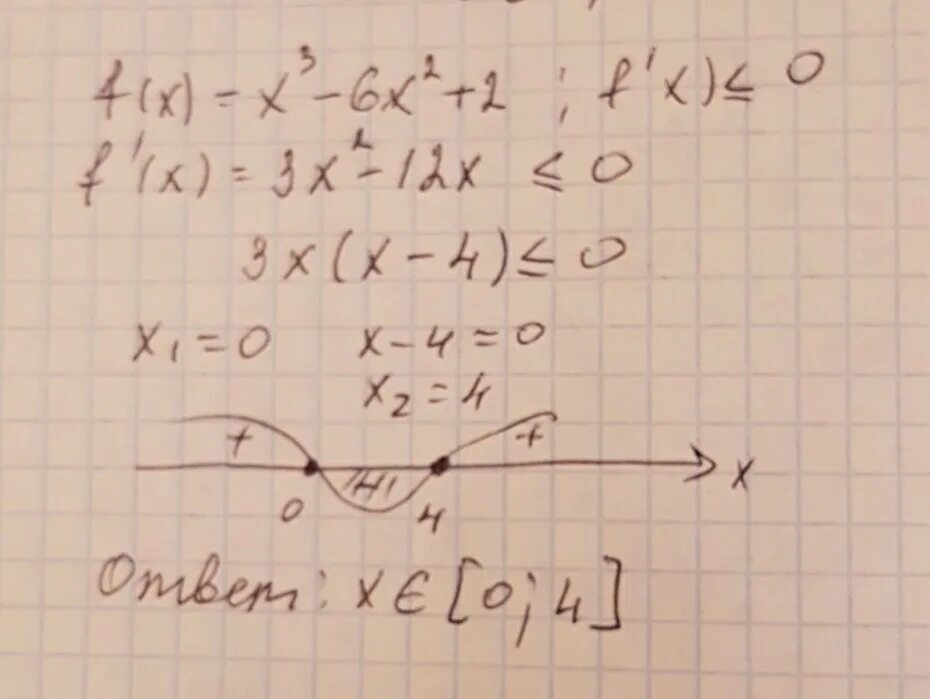 f(x) = x³ - 6x² + 2 ; f'x) ≤ 0
f'(x) = 3x² - 12x ≤ 0
3x(x - 4) ≤ 0
x₁ = 0 x - 4 = 0
x₂ = 4
+ +
x
0 4
Ответ: x ∈ [0; 4]